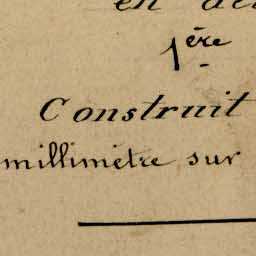 en
1ère
Construit
millimètre sur